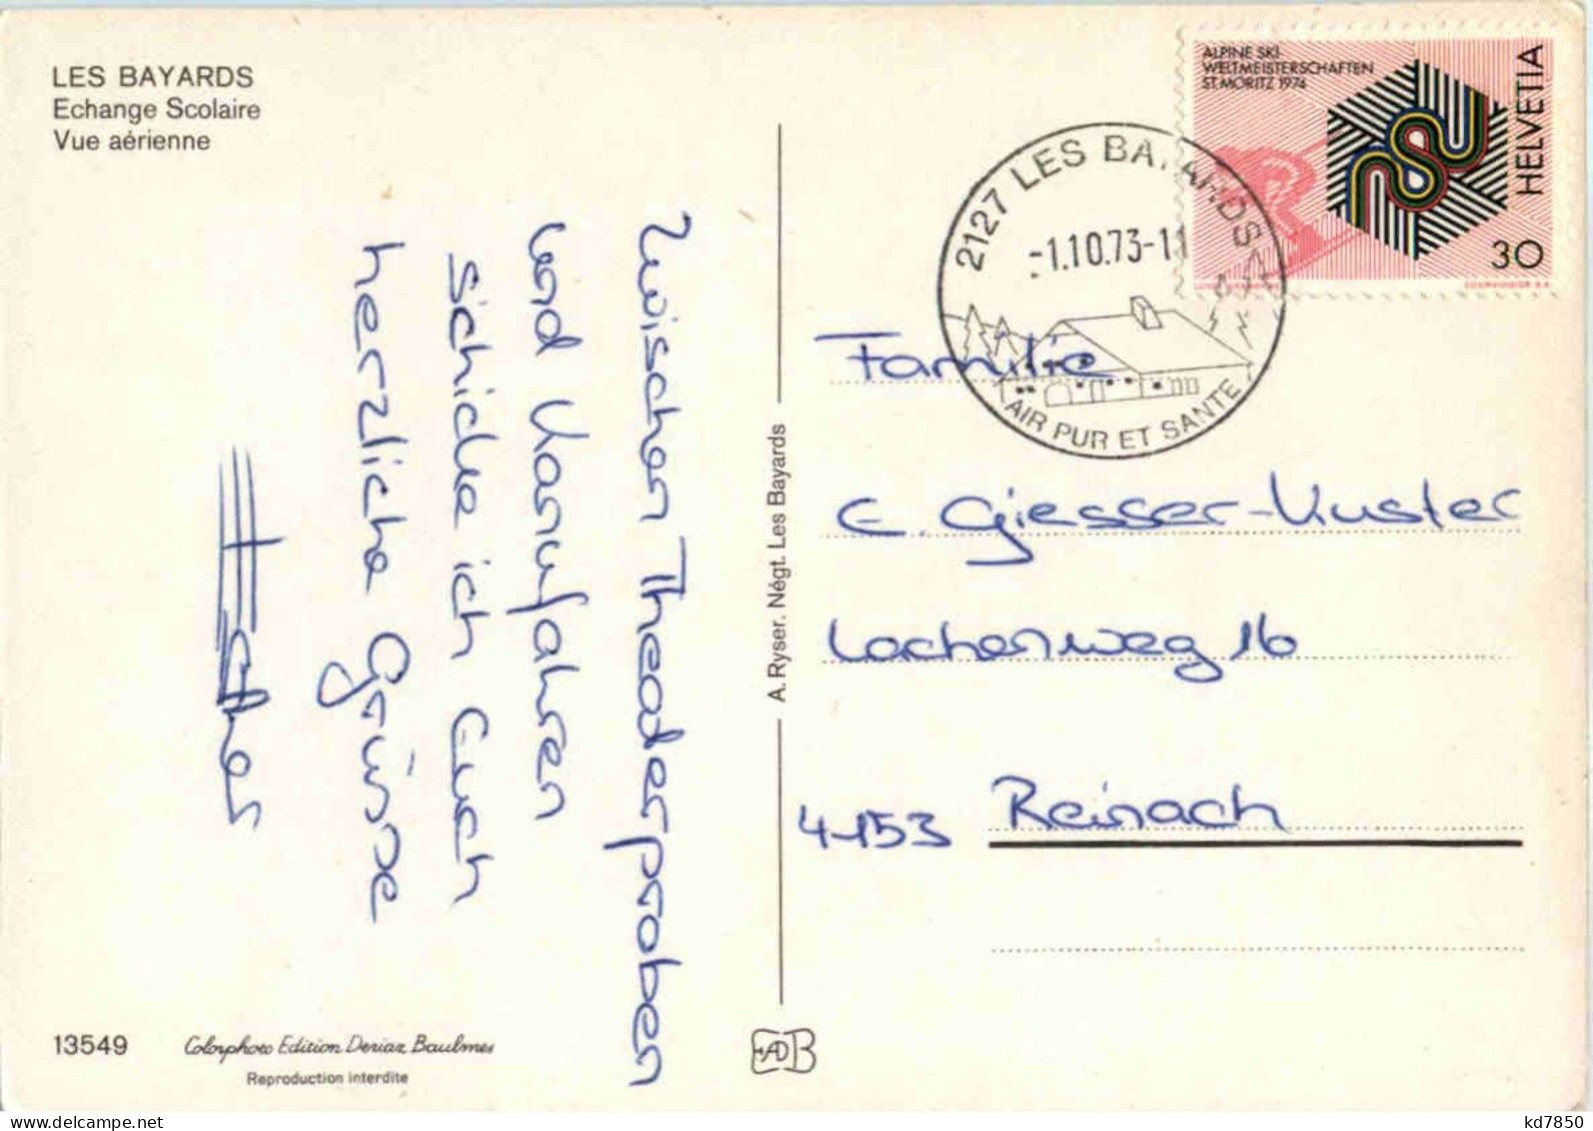 LES BAYARDS
Echange Scolaire
Vue aérienne
ALPINE SKI-
WELTMEISTERSCHAFTEN
ST. MORITZ 1974
HELVETIA
30
COURVOISIER S.A.
2127 LES BAYARDS
-1.10.73-11
AIR PUR ET SANTE
Zwischen Theaterproben
und Kanufahren
schicke ich Euch
herzliche Grüsse
Esther
A. Ryser. Négt. Les Bayards
Familie
E. Giesser-Kuster
Lochenweg 16
4153 Reinach
13549
Colorphoto Edition Deriaz Baulmes
Reproduction interdite
kd7850